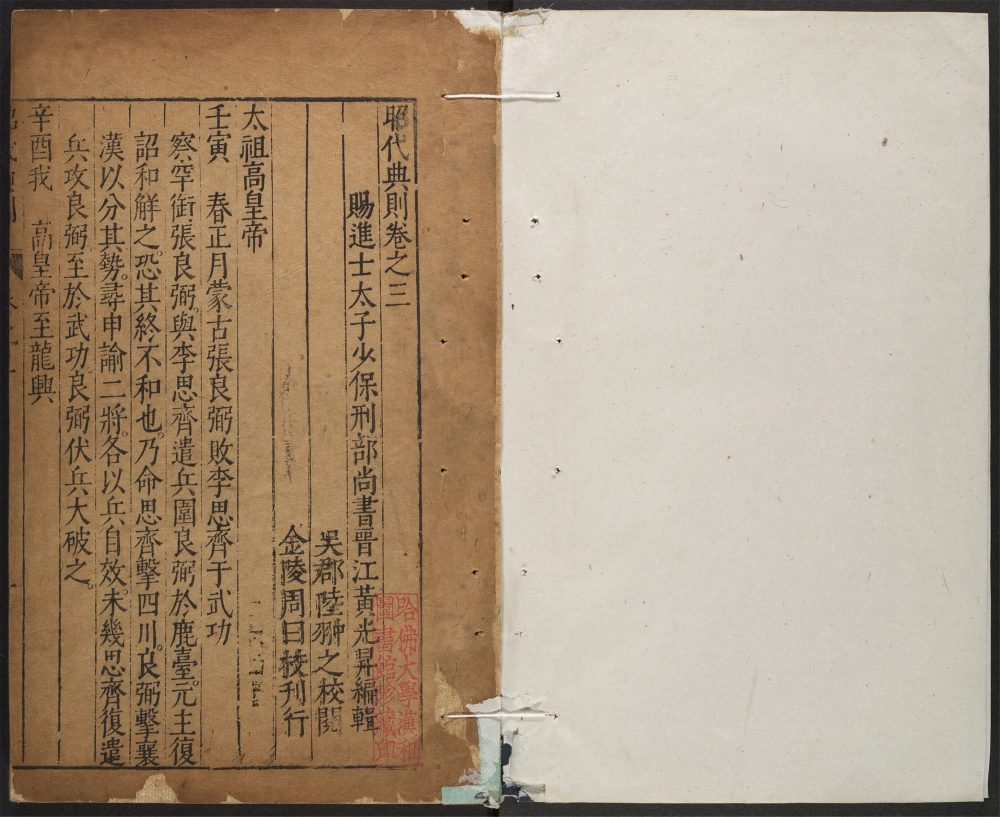 昭代典則卷之三
賜進士太子少保刑部尚書晉江黃光昇編輯
吳郡陸翀之校閱
金陵周曰校刊行
太祖高皇帝
壬寅 春正月蒙古張良弼敗李思齊于武功
察罕銜張良弼與李思齊遣兵圍良弼於鹿臺。元主復
詔和解之。恐其終不和也。乃命思齊擊四川。良弼擊襄
漢以分其勢。尋申諭二將。各以兵自效。未幾思齊復遣
兵攻良弼至於武功良弼伏兵大破之。
辛酉我 高皇帝至龍興
哈佛大學漢和
圖書館珍藏印